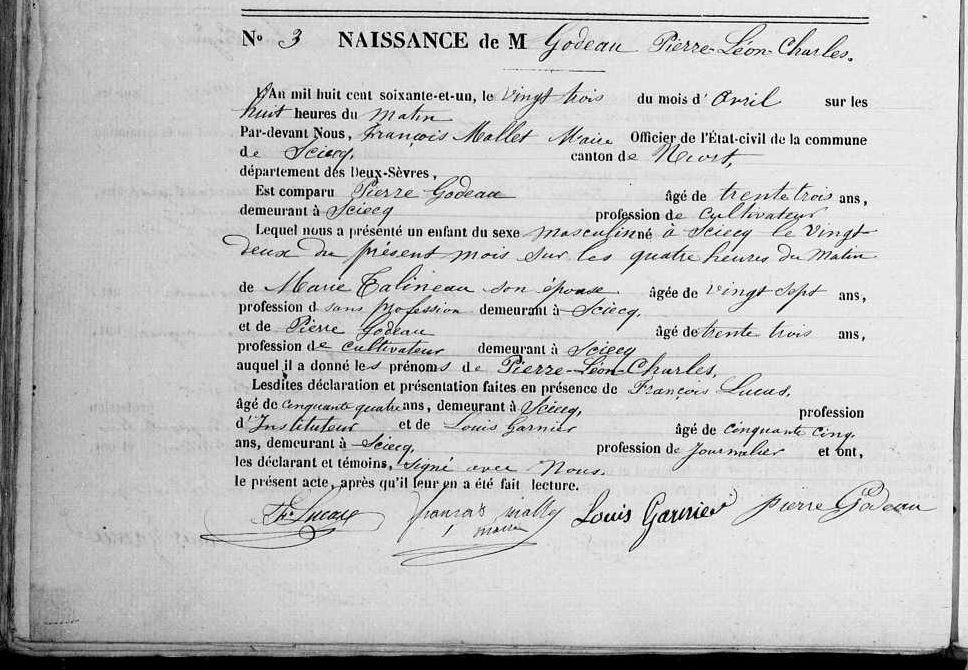 N° 3 NAISSANCE de M Godeau Pierre-Léon-Charles.
L'An mil huit cent soixante-et-un, le vingt trois du mois d'Avril sur les
huit heures du matin
Par-devant Nous, François Mallet Maire Officier de l'État-civil de la commune
de Sciecq, canton de Niort,
département des Deux-Sèvres,
Est comparu Pierre Godeau âgé de trente trois ans,
demeurant à Sciecq profession de cultivateur
Lequel nous a présenté un enfant du sexe masculin né à Sciecq le vingt
deux du présent mois sur les quatre heures du matin
de Marie Talineau son épouse âgée de vingt sept ans,
profession d sans profession demeurant à Sciecq,
et de Pierre Godeau âgé de trente trois ans,
profession de cultivateur demeurant à Sciecq
auquel il a donné les prénoms de Pierre-Léon-Charles,
Lesdites déclaration et présentation faites en présence de François Lucas,
âgé de cinquante quatre ans, demeurant à Sciecq, profession
d'Instituteur et de Louis Garnier âgé de cinquante cinq
ans, demeurant à Sciecq, profession de journalier et ont,
les déclarant et témoins, signé avec Nous.
le présent acte, après qu'il leur en a été fait lecture.
Lucas François Mallet Louis Garnier Pierre Godeau
maire